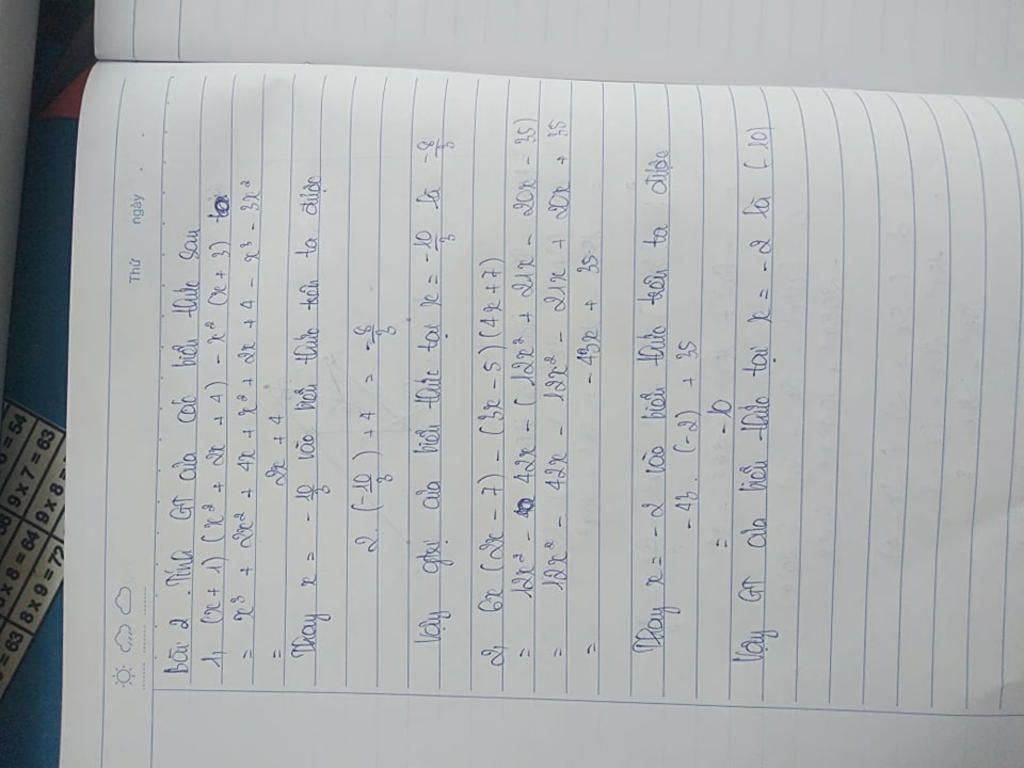 Thứ
ngày
Bài 2. Tính GT của các biểu thức sau
1, (x + 1) (x² + 2x + 4) - x² (x + 3)
= x³ + 2x² + 4x + x² + 2x + 4 - x³ - 3x²
= 2x + 4
Thay x = - 10/3 vào biểu thức trên ta được
2. (-10/3) + 4 = -8/3
Vậy giá trị của biểu thức tại x = -10/3 là -8/3
2, 6x (2x - 7) - (3x - 5) (4x + 7)
= 12x² - 42x - (12x² + 21x - 20x - 35)
= 12x² - 42x - 12x² - 21x + 20x + 35
= - 43x + 35
Thay x = - 2 vào biểu thức trên ta được
- 43. (-2) + 35
= - 10
Vậy GT của biểu thức tại x = - 2 là (- 10)
8 x 8 = 64
9 x 7 = 63
= 63
8 x 9 = 72
9 x 8 =
= 54